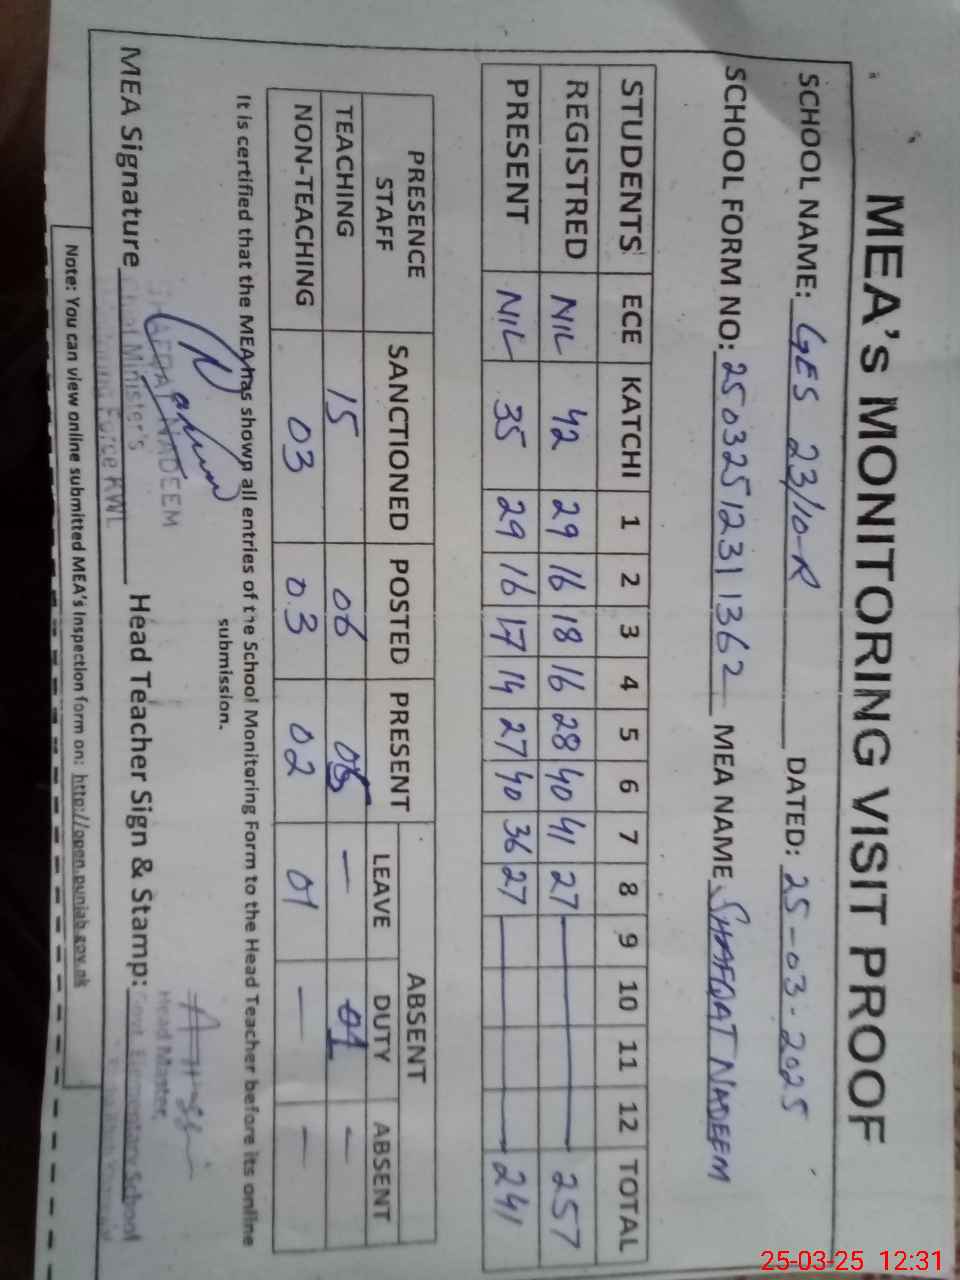 MEA's MONITORING VISIT PROOF
SCHOOL NAME: GES 23/10-R DATED: 25-03-2025
SCHOOL FORM NO: 25032512311362 MEA NAME SHAFQAT NADEEM
STUDENTS ECE KATCHI 1 2 3 4 5 6 7 8 9 10 11 12 TOTAL
REGISTRED NIL 42 29 16 18 16 28 40 41 27 257
PRESENT NIL 35 29 16 17 14 27 40 36 27 241
PRESENCE STAFF SANCTIONED POSTED PRESENT ABSENT
LEAVE DUTY ABSENT
TEACHING 15 06 05 — 01 —
NON-TEACHING 03 03 02 01 — —
It is certified that the MEA has shown all entries of the School Monitoring Form to the Head Teacher before its online
submission.
MEA Signature Head Teacher Sign & Stamp:
SHAFQAT NADEEM
Chief Minister's
Monitoring Force KWL
Head Master,
Govt. Elementary School
Note: You can view online submitted MEA's Inspection form on: http://open.punjab.gov.pk
25-03-25 12:31